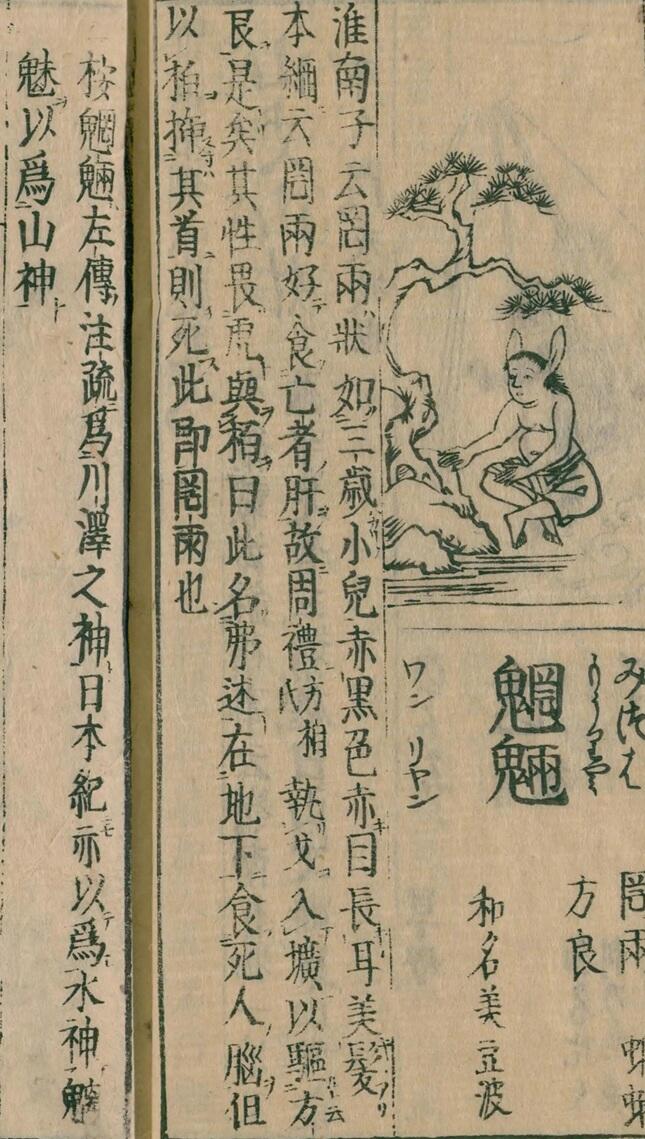 みつは
魍魎
ワン リヤン
罔兩
方良
和名美豆波
淮南子云罔兩狀如三歳小兒赤黒色赤目長耳美髪
本綱云罔兩好食亡者肝故周禮方相氏執戈入壙以驅方
良是矣其性畏虎與栢曰此名弗述在地下食死人腦但
以栢揷其首則死此即罔兩也
桉魍魎左傳注疏爲川澤之神日本紀亦以爲水神魑
魅以爲山神